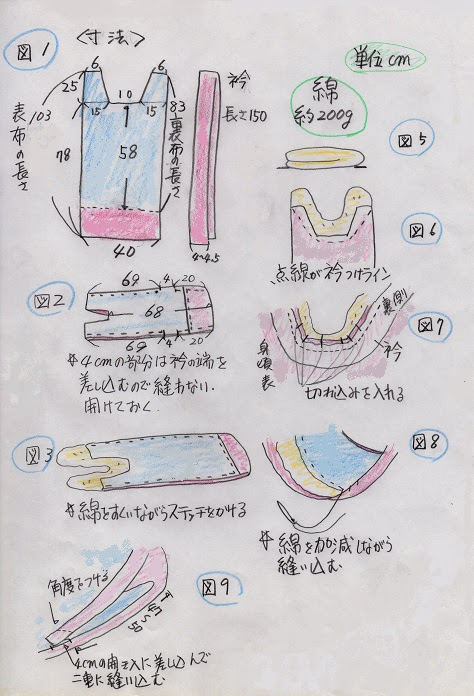 図1 〈寸法〉
単位cm
綿
約200g
6
6
25
10
15
15
83
103
表布の長さ
78
58
裏布の長さ
40
衿
長さ150
4~4.5
図5
図6
点線が衿つけライン
図2
69
4
20
68
69
4
20
☆4cmの部分は衿の端を
差し込むので縫わない.
開けておく.
図7
裏側
衿
身頃表
切れ込みを入れる
図3
☆綿をすくいながらステッチをかける
図8
☆綿を加減しながら
縫い込む
図9
角度をつける
4cmの開き入に差し込んで
二重に縫い込む